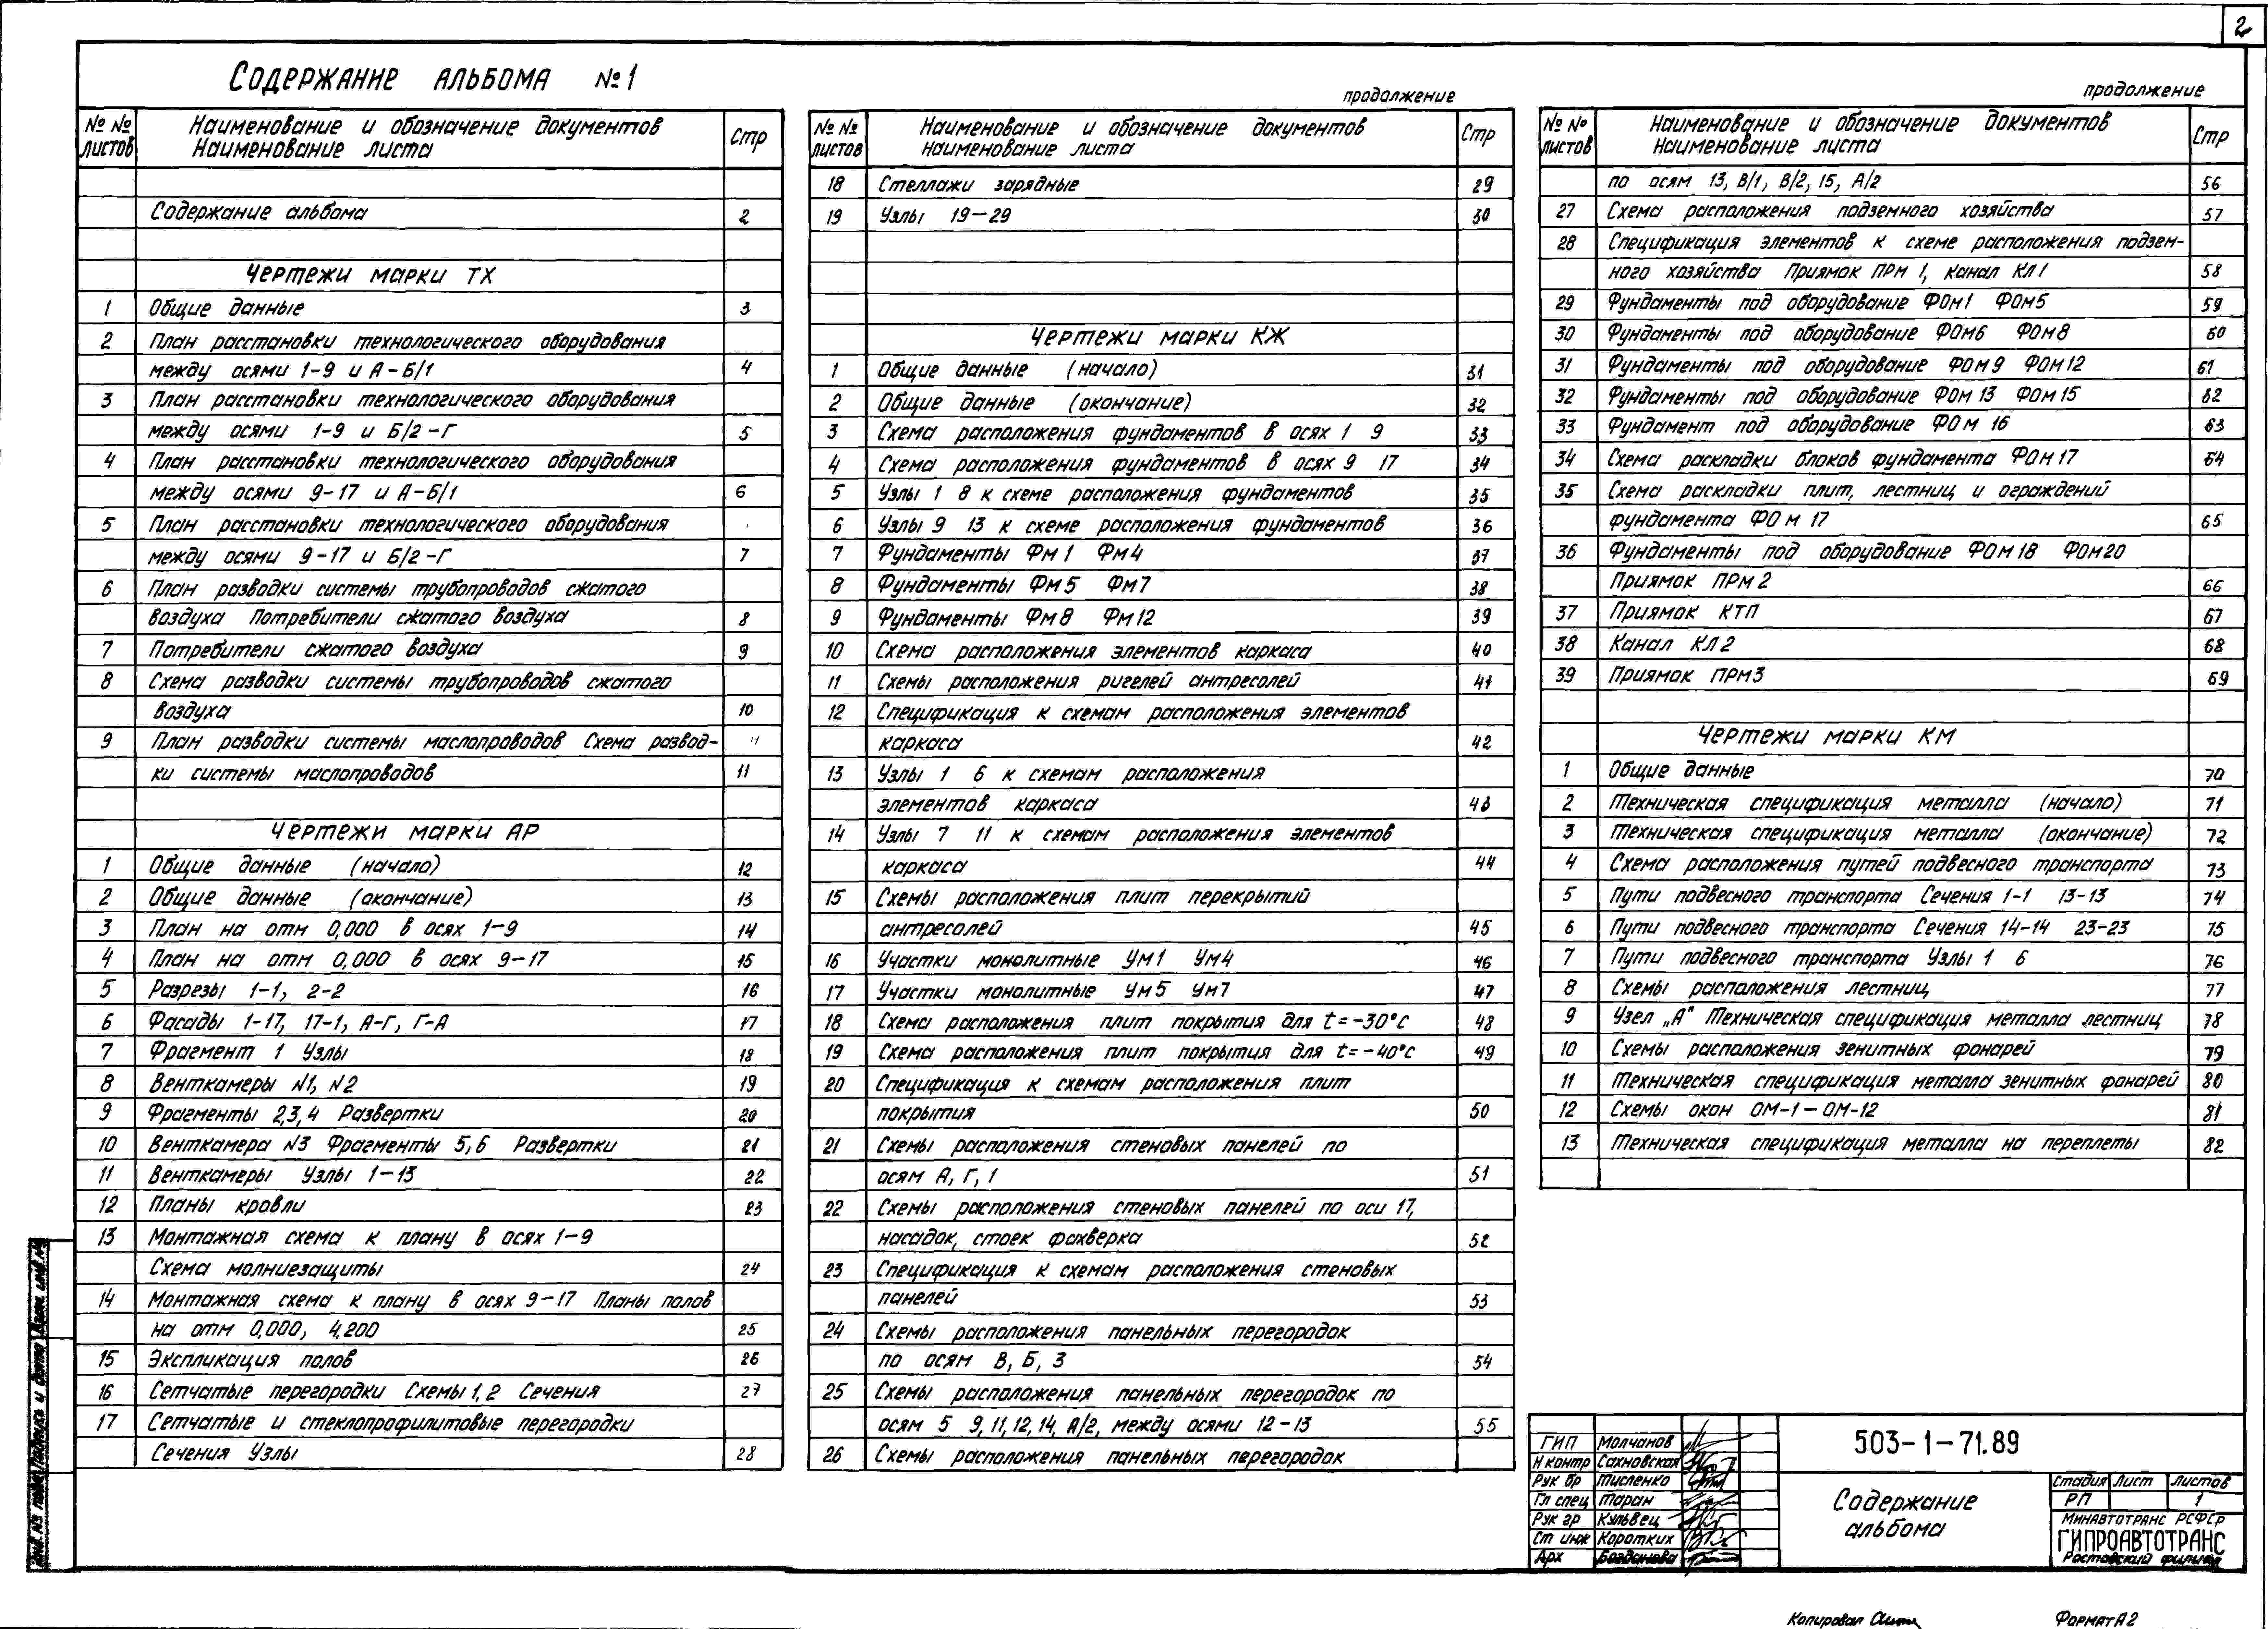 2
Содержание альбома №1
№ № листов Наименование и обозначение документов Наименование листа Стр
Содержание альбома 2
Чертежи марки ТХ
1 Общие данные 3
2 План расстановки технологического оборудования
между осями 1-9 и А-Б/1 4
3 План расстановки технологического оборудования
между осями 1-9 и Б/2-Г 5
4 План расстановки технологического оборудования
между осями 9-17 и А-Б/1 6
5 План расстановки технологического оборудования
между осями 9-17 и Б/2-Г 7
6 План разводки системы трубопроводов сжатого
воздуха Потребители сжатого воздуха 8
7 Потребители сжатого воздуха 9
8 Схема разводки системы трубопроводов сжатого
воздуха 10
9 План разводки системы маслопроводов Схема развод- 11
ки системы маслопроводов 11
Чертежи марки АР
1 Общие данные (начало) 12
2 Общие данные (окончание) 13
3 План на отм 0,000 в осях 1-9 14
4 План на отм 0,000 в осях 9-17 15
5 Разрезы 1-1, 2-2 16
6 Фасады 1-17, 17-1, А-Г, Г-А 17
7 Фрагмент 1 Узлы 18
8 Венткамеры N1, N2 19
9 Фрагменты 2,3,4 Развертки 20
10 Венткамера N3 Фрагменты 5,6 Развертки 21
11 Венткамеры Узлы 1-13 22
12 Планы кровли 23
13 Монтажная схема к плану в осях 1-9
Схема молниезащиты 24
14 Монтажная схема к плану в осях 9-17 Планы полов
на отм 0,000, 4,200 25
15 Экспликация полов 26
16 Сетчатые перегородки Схемы 1,2 Сечения 27
17 Сетчатые и стеклопрофилитовые перегородки
Сечения Узлы 28
продолжение
№ № листов Наименование и обозначение документов Наименование листа Стр
18 Стеллажи зарядные 29
19 Узлы 19-29 30
Чертежи марки КЖ
1 Общие данные (начало) 31
2 Общие данные (окончание) 32
3 Схема расположения фундаментов в осях 1 9 33
4 Схема расположения фундаментов в осях 9 17 34
5 Узлы 1 8 к схеме расположения фундаментов 35
6 Узлы 9 13 к схеме расположения фундаментов 36
7 Фундаменты Фм1 Фм4 37
8 Фундаменты Фм5 Фм7 38
9 Фундаменты Фм8 Фм12 39
10 Схема расположения элементов каркаса 40
11 Схемы расположения ригелей антресолей 41
12 Спецификация к схемам расположения элементов
каркаса 42
13 Узлы 1 6 к схемам расположения
элементов каркаса 43
14 Узлы 7 11 к схемам расположения элементов
каркаса 44
15 Схемы расположения плит перекрытий
антресолей 45
16 Участки монолитные Ум1 Ум4 46
17 Участки монолитные Ум5 Ум7 47
18 Схема расположения плит покрытия для t=-30°С 48
19 Схема расположения плит покрытия для t=-40°С 49
20 Спецификация к схемам расположения плит
покрытия 50
21 Схемы расположения стеновых панелей по
осям А, Г, 1 51
22 Схемы расположения стеновых панелей по оси 17,
насадок, стоек фахверка 52
23 Спецификация к схемам расположения стеновых
панелей 53
24 Схемы расположения панельных перегородок
по осям В, Б, 3 54
25 Схемы расположения панельных перегородок по
осям 5 9, 11, 12, 14, А/2, между осями 12-13 55
26 Схемы расположения панельных перегородок
продолжение
№ № листов Наименование и обозначение документов Наименование листа Стр
по осям 13, В/1, В/2, 15, А/2 56
27 Схема расположения подземного хозяйства 57
28 Спецификация элементов к схеме расположения подзем-
ного хозяйства Приямок ПРм 1, канал КЛ1 58
29 Фундаменты под оборудование ФОм1 ФОм5 59
30 Фундаменты под оборудование ФОм6 ФОм8 60
31 Фундаменты под оборудование ФОм9 ФОм12 61
32 Фундаменты под оборудование ФОм13 ФОм15 62
33 Фундамент под оборудование ФОм16 63
34 Схема раскладки блоков фундамента ФОм17 64
35 Схема раскладки плит, лестниц и ограждений
фундамента ФОм 17 65
36 Фундаменты под оборудование ФОм18 ФОм20
Приямок ПРм2 66
37 Приямок КТП 67
38 Канал КЛ2 68
39 Приямок ПРм3 69
Чертежи марки КМ
1 Общие данные 70
2 Техническая спецификация металла (начало) 71
3 Техническая спецификация металла (окончание) 72
4 Схема расположения путей подвесного транспорта 73
5 Пути подвесного транспорта Сечения 1-1 13-13 74
6 Пути подвесного транспорта Сечения 14-14 23-23 75
7 Пути подвесного транспорта Узлы 1 6 76
8 Схемы расположения лестниц 77
9 Узел „А" Техническая спецификация металла лестниц 78
10 Схемы расположения зенитных фонарей 79
11 Техническая спецификация металла зенитных фонарей 80
12 Схемы окон ОМ-1-ОМ-12 81
13 Техническая спецификация металла на переплеты 82
ГИП Молчанов
Н контр Сахновская
Рук бр Тисленко
Гл спец Таран
Рук гр Кульвец
Ст инж Коротких
Арх Богданова
503-1-71.89
Содержание
альбома
Стадия Лист Листов
РП 1
Минавтотранс РСФСР
ГИПРОАВТОТРАНС
Ростовский филиал
Инв.№ подл Подпись и дата Взам. инв.№
Копировал
Формат А2